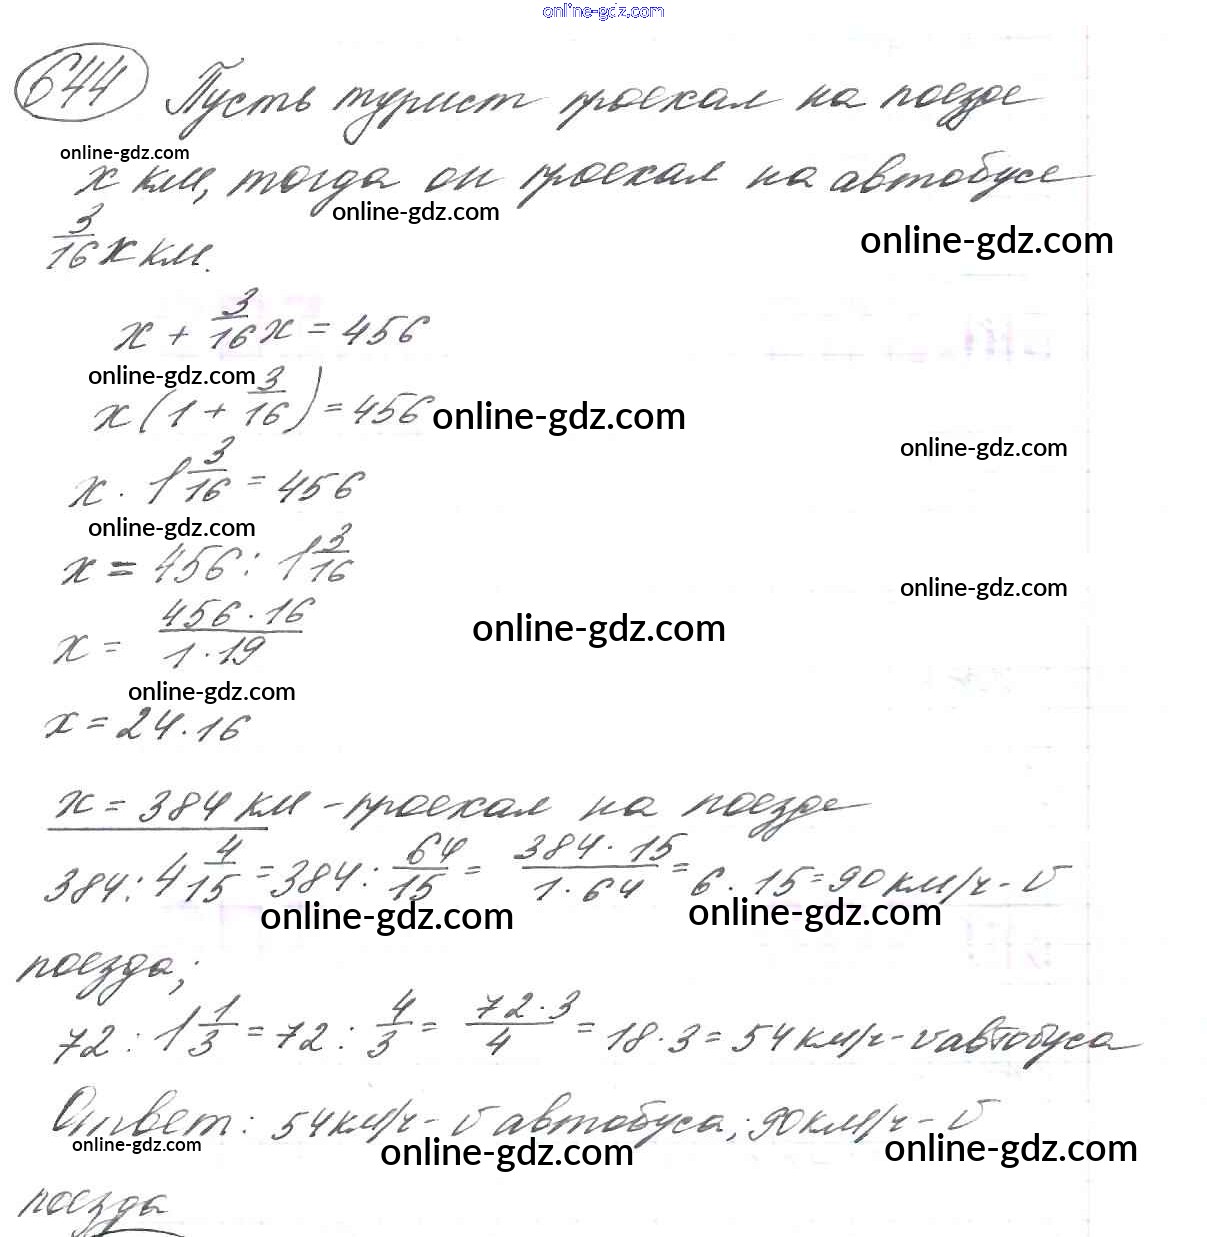 online-gdz.com
644 Пусть турист проехал на поезде
online-gdz.com
x км, тогда он проехал на автобусе
online-gdz.com
3/16 x км.
online-gdz.com
x + 3/16 x = 456
online-gdz.com
x (1 + 3/16) = 456
online-gdz.com
online-gdz.com
x · 1 3/16 = 456
online-gdz.com
x = 456 : 1 3/16
online-gdz.com
x = 456 · 16 / 1 · 19
online-gdz.com
online-gdz.com
x = 24 · 16
x = 384 км – проехал на поезде
384 : 4 4/15 = 384 : 64/15 = 384 · 15 / 1 · 64 = 6 · 15 = 90 км/ч – v
online-gdz.com
online-gdz.com
поезда;
72 : 1 1/3 = 72 : 4/3 = 72 · 3 / 4 = 18 · 3 = 54 км/ч – v автобуса
Ответ: 54 км/ч – v автобуса; 90 км/ч – v
online-gdz.com
online-gdz.com
online-gdz.com
поезда